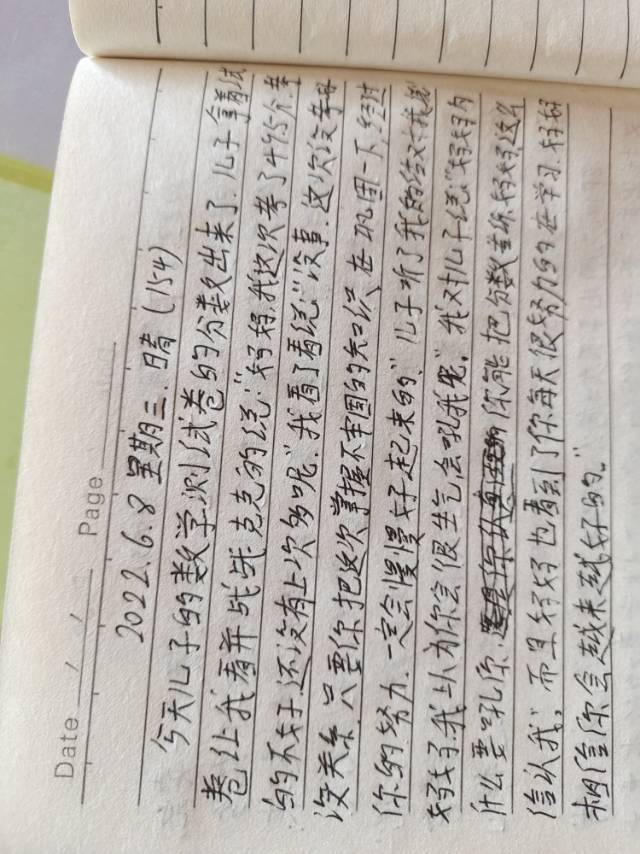 Date / / Page
2022.6.8 星期三. 晴 (154)
今天儿子的数学测试卷的分数出来了. 儿子拿着试
卷让我看并吱吱克克的说:"妈妈.我这次考了4795分.考
的不好.还没有上次多呢."我看了看说:"没事.这次没考好
没关系.只要你把这次掌握不牢固的知识.在巩固一下.经过
你的努力.一定会慢慢好起来的."儿子听了我的给对我说
妈妈我以为你会很生气.会吼我呢."我对儿子说:"妈妈为
什么要吼你.你能把分数告诉妈妈.这么
信认我,而且妈妈也看到了你每天很努力的在学习.妈妈
相信你会越来越好的."